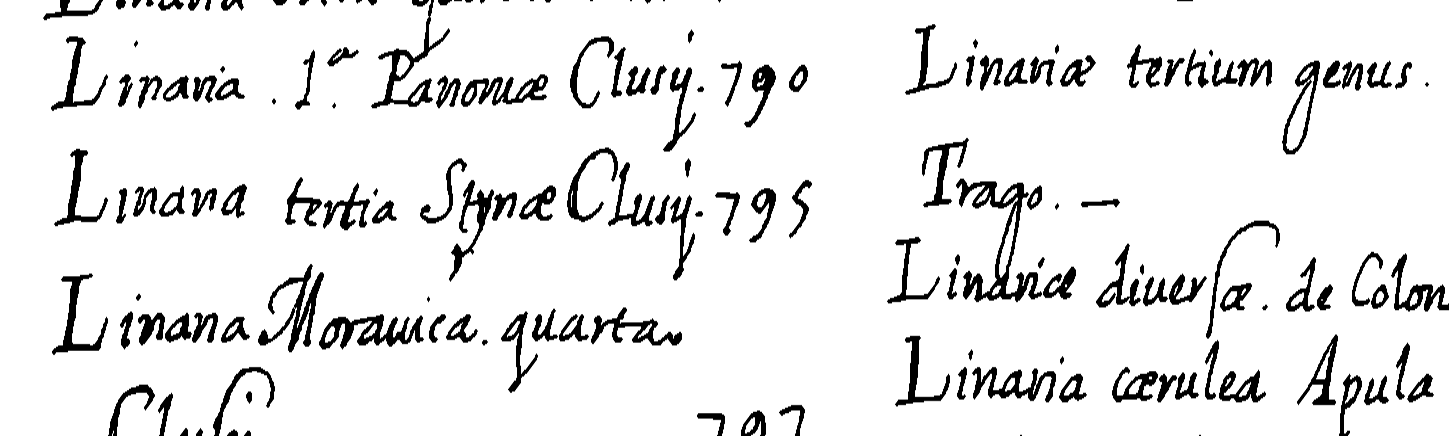 Linaria . 1.a Panoniæ Clusij. 790
Linaria tertia Styriæ Clusij. 795
Linaria Morauica. quarta
Clusij 797
Linariæ tertium genus.
Trago. —
Linariæ diuersæ. de Colon
Linaria cærulea Apula